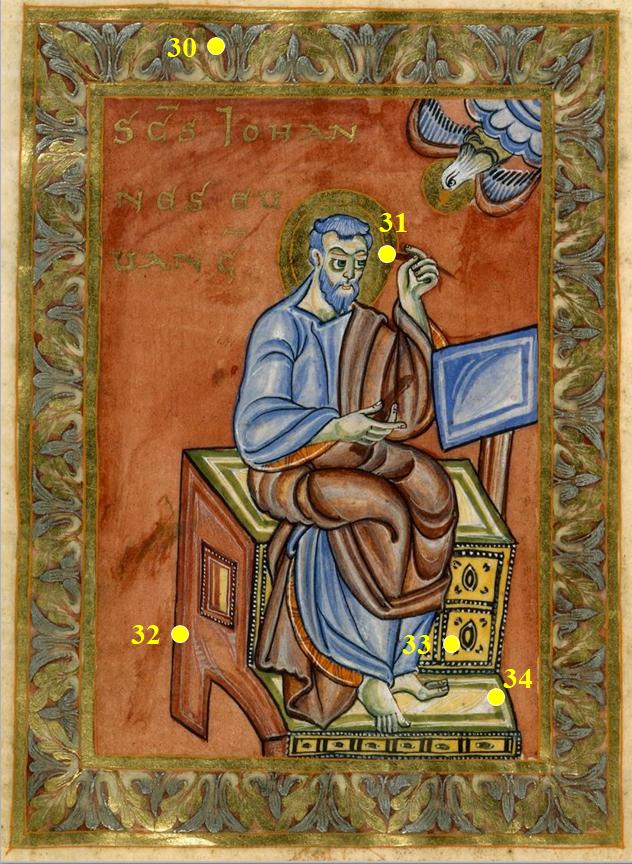 30
S̄C̄S IOHAN
31
NES EU
UANḠ
32
33
34